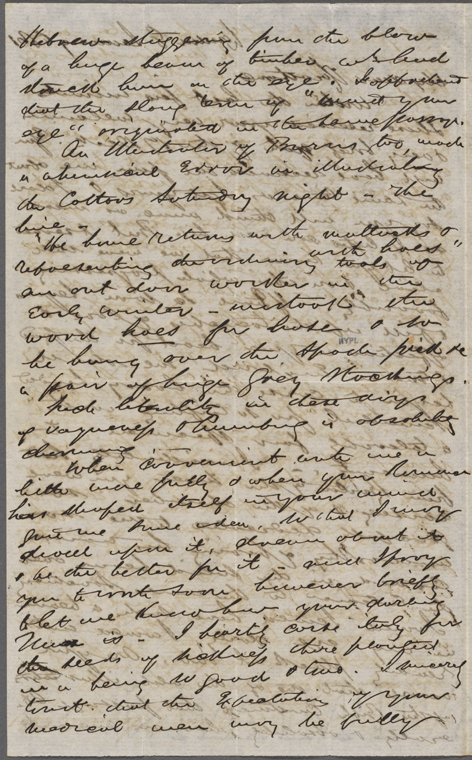 Hebrew staggering from the blow
of a huge beam of timber which had
struck him in the eye". I apprehend
that the slang term of "mind your
eye" originated in the same passage.
An Illustrator of Burns too, made
a whimsical Error in illustrating
the Cotters Saturday night - The
line -
"He home returns with mattocks &
with hoes"
representing the ordinary tools of
an out door worker in the
Early winter - mistook the
word hoes for hose & so
he hung over the spade
NYPL
a pair of huge Grey Stockings.
Such literality in these days
of vagueness & humbug is absolutely
charming
When convenient write me a
letter more fully & when your Romance
has shaped itself in your mind
give me some idea, so that I may
dwell upon it, dream about it
& be the better for it - and I pray
you to write soon, however briefly
& let me know how your darling
is - I heartily curse Italy for
the seeds of sickness there planted
in a being so good & true. I sincerely
trust that the Expectation of your
medical men may be fully